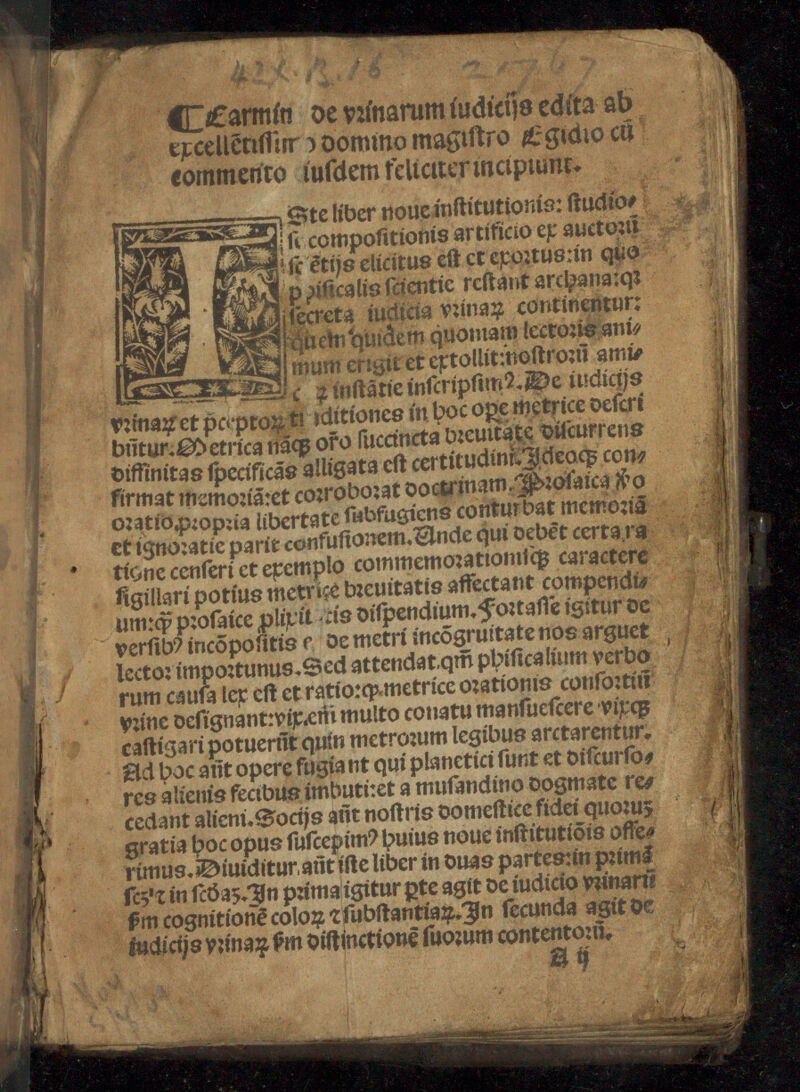 42X.B.16
¶ Carmin de vrinarum iudicijs edita ab
excellẽtissī ꝛ domino magistro Egidio cū
commento iusdem feliciter incipiunt.
Ste liber noue institutionis: studio⸗
compositionis artificio ex auctorū
ẽtijs elicitus est et exortus: in quo
scientie restant archana: qꝫ
secreta iudicia vrinaꝝ continentur:
quem quidem quoniam lectoris ani⸗
mum erigit et extollit: nostrorū ami⸗
ꝛ instātie inscripsimꝰ. De iudicijs
vrinaꝝ et p̄ceptoꝝ iditiones in hoc ope metrice descri
būtur. Metrica nāqꝫ oro succincta breuitate discurrens
diffinitas specificās alligata est certitudini. Ideoqꝫ con⸗
firmat memoriā: et corroborat doctrinam. Prosaica ꝟo
oratio, propria libertate subfugiens conturbat memoriā
et ignoratie parit confusionem. Unde qui debēt certa ra
tione censeri et exemplo commemorationisqꝫ caractere
sigillari potius metrice breuitatis affectant compendi⸗
um: qꝫ prosaice plixit tis dispendium. Fortasse igitur de
versibꝰ incōpositis ꝛ de metri incōgruitate nos arguet
lector importunus. Sed attendat, qm̄ phisicalium verbo
rum causa lex est et ratio: qꝫ metrice orationis consortiū
vrine designant: vix em̄ multo conatu mansuescere vixqꝫ
castigari potuerūt quin metrorum legibus arctarentur.
Ad hoc aūt opere fugiant qui planetici sunt et discurso⸗
res alienis fecibus imbuti: et a musandino dogmate re⸗
cedant alieni. Socijs aūt nostris domestice fidei quorūꝫ
gratia hoc opus suscepimꝰ huius noue institutiōis offe⸗
rimus. Diuiditur aūt iste liber in duas partes: in primā
scꝫ ꝛ in scd̄aꝫ. In prima igitur pte agit de iudicio vrinarū
ſm cognitionē coloꝝ ꝛ substantiaꝝ. In secunda agit de
iudicijs vrinaꝝ ſm distinctionē suorum contentorū.
A ij